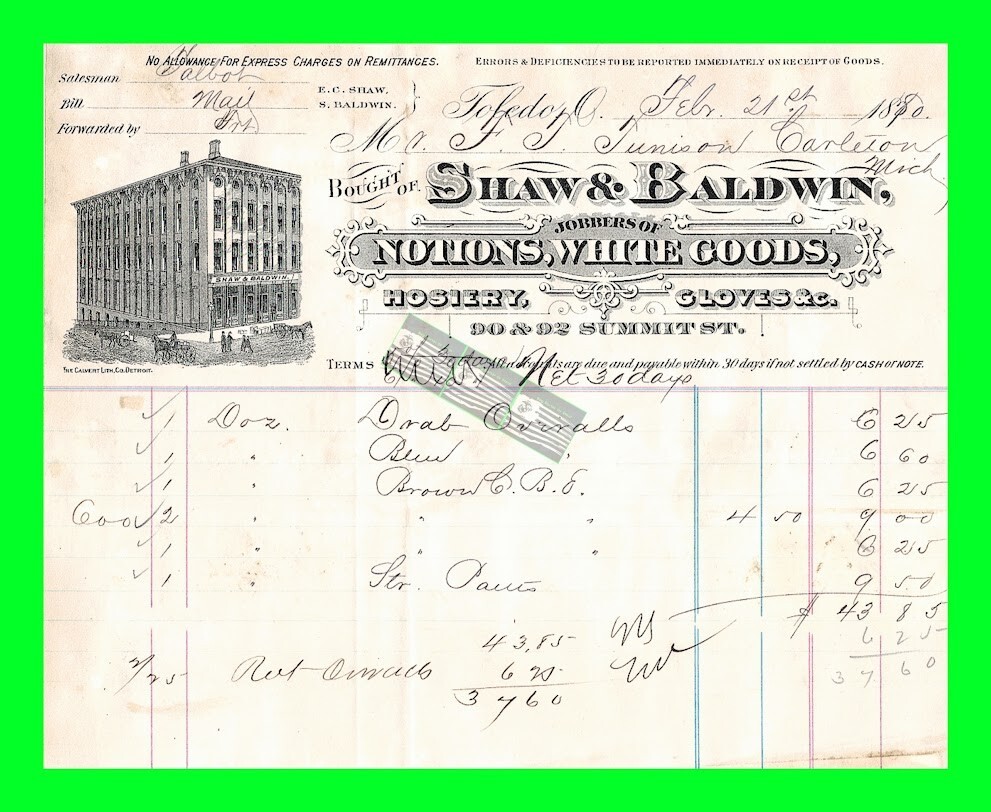 No Allowance For Express Charges on Remittances.
Errors & Deficiencies to be reported immediately on receipt of Goods.
Salesman Talbot
Bill Mail
Forwarded by Frt
E. C. SHAW.
S. BALDWIN.
Toledo, O. Febr. 21st 1880.
Mr. F. J. Tunison Carleton
Mich
Bought of SHAW & BALDWIN,
JOBBERS OF
NOTIONS, WHITE GOODS,
HOSIERY, GLOVES &c.
90 & 92 SUMMIT ST.
SHAW & BALDWIN.
The Calvert Lith. Co. Detroit.
TERMS Net 30 days
All accounts are due and payable within 30 days if not settled by CASH or NOTE.
1 Doz. Drab Overalls 6 25
1 " Blue " 6 60
1 " Brown C. B. 6 25
600 2 " " " 4 50 9 00
1 " " " 6 25
1 " Str. Pants 9 50
$ 43 85
6 25
37 60
43,85
2/25 Ret Overalls 6 25
37 60